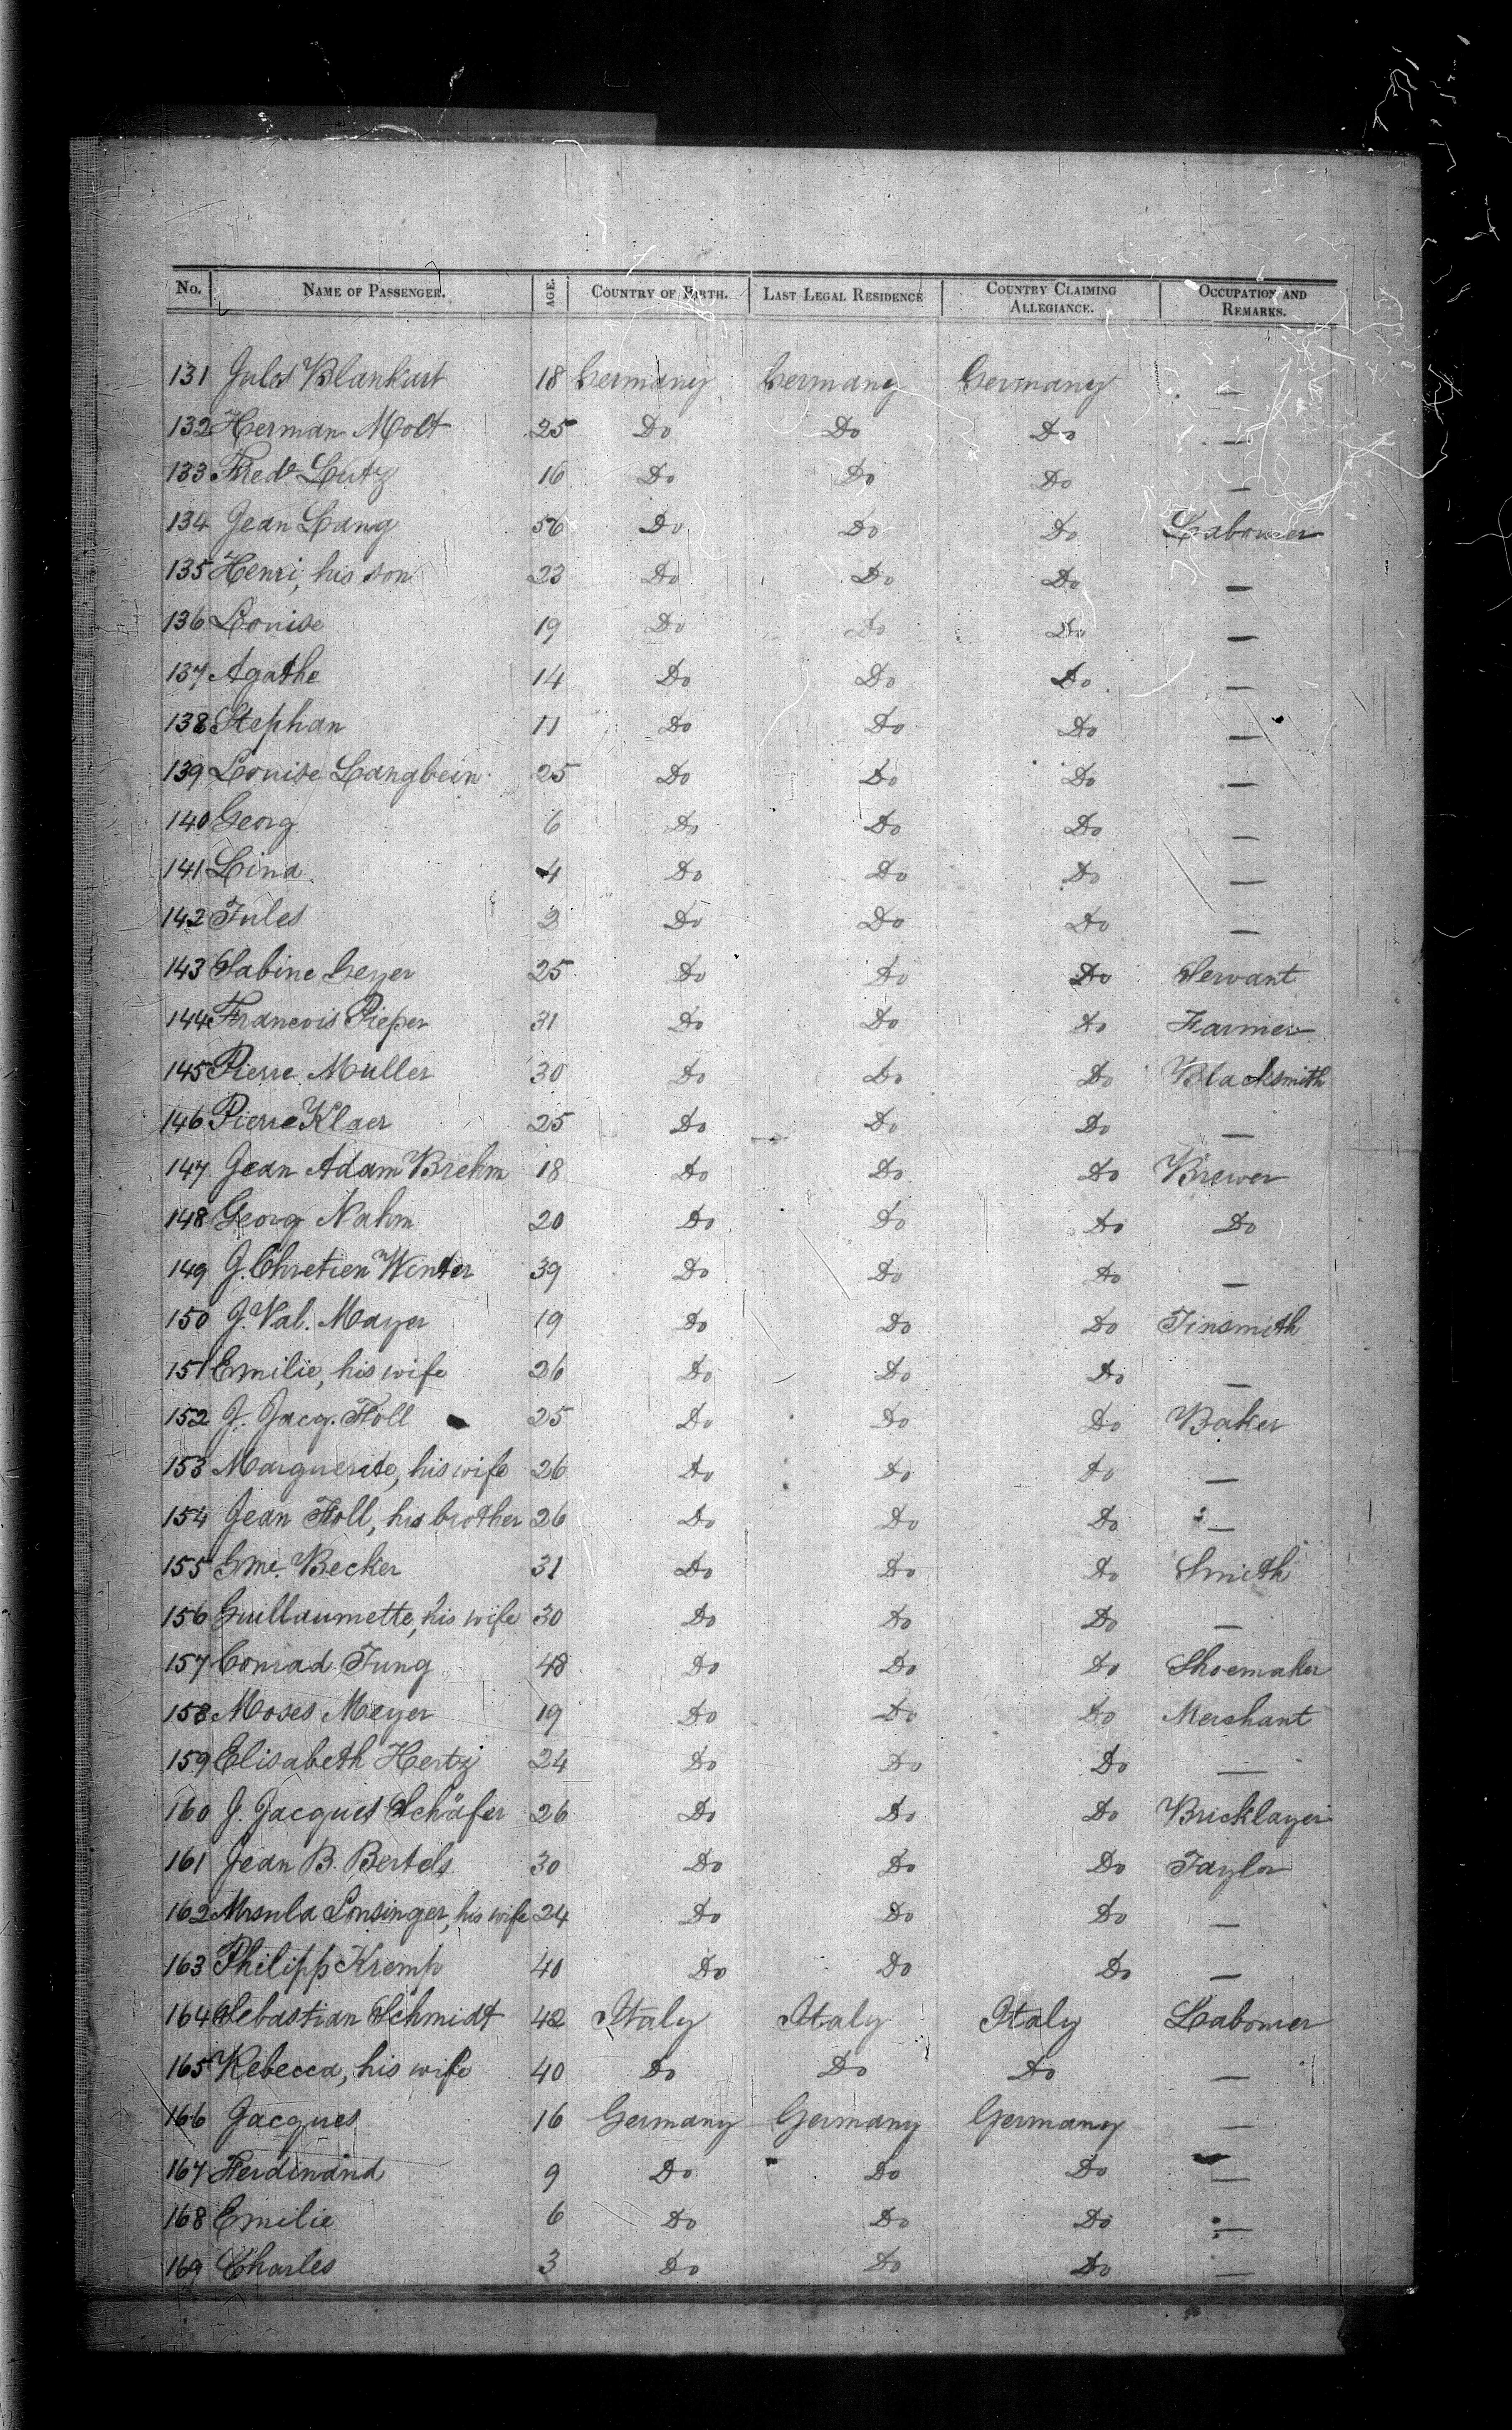 No. NAME OF PASSENGER. AGE. COUNTRY OF BIRTH. LAST LEGAL RESIDENCE COUNTRY CLAIMING ALLEGIANCE. OCCUPATION AND REMARKS.
131 Jules Blankart 18 Germany Germany Germany —
132 Herman Molt 25 Do Do Do —
133 Fredk Lutz 16 Do Do Do —
134 Jean Lang 56 Do Do Do Labourer
135 Henri, his son 23 Do Do Do —
136 Louise 19 Do Do Do —
137 Agathe 14 Do Do Do —
138 Stephan 11 Do Do Do —
139 Louise Langbein 25 Do Do Do —
140 Georg 6 Do Do Do —
141 Lina 4 Do Do Do —
142 Jules 2 Do Do Do —
143 Sabine Geyer 25 Do Do Do Servant
144 Francois Pieper 31 Do Do Do Farmer
145 Pierre Muller 30 Do Do Do Blacksmith
146 Pierre Klaer 25 Do Do Do —
147 Jean Adam Brehm 18 Do Do Do Brewer
148 Georg Nahm 20 Do Do Do Do
149 J. Chretien Winter 39 Do Do Do —
150 J. Val. Mayer 19 Do Do Do Tinsmith
151 Emilie, his wife 26 Do Do Do —
152 J. Jacq. Foll 25 Do Do Do Baker
153 Marguerite, his wife 26 Do Do Do —
154 Jean Foll, his brother 26 Do Do Do —
155 Gme. Becker 31 Do Do Do Smith
156 Guillaumette, his wife 30 Do Do Do —
157 Conrad Jung 48 Do Do Do Shoemaker
158 Moses Meyer 19 Do Do Do Merchant
159 Elisabeth Hertz 24 Do Do Do —
160 J. Jacques Schäfer 26 Do Do Do Bricklayer
161 Jean B. Bertels 30 Do Do Do Taylor
162 Ursula Lonsinger, his wife 24 Do Do Do —
163 Philipp Kremp 40 Do Do Do —
164 Sebastian Schmidt 42 Italy Italy Italy Labourer
165 Rebecca, his wife 40 Do Do Do —
166 Jacques 16 Germany Germany Germany —
167 Ferdinand 9 Do Do Do —
168 Emilie 6 Do Do Do —
169 Charles 3 Do Do Do —